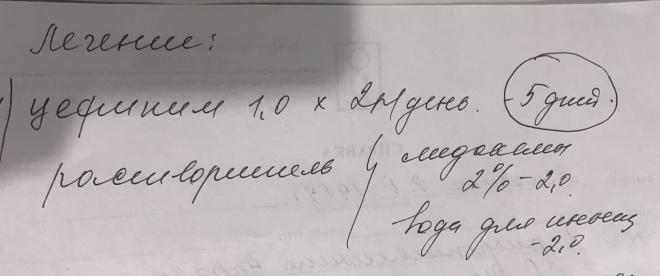 Лечение:
) цефипим 1,0 x 2р/день. - 5 дней.
растворитель { лидокаины
2% - 2,0
вода для инъекц
- 2,0.
СПРАВКА